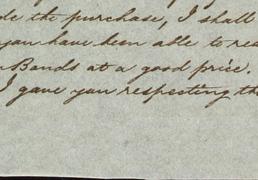 the purchase, I shall
you have been able to
Bonds at a good price.
I gave you respecting